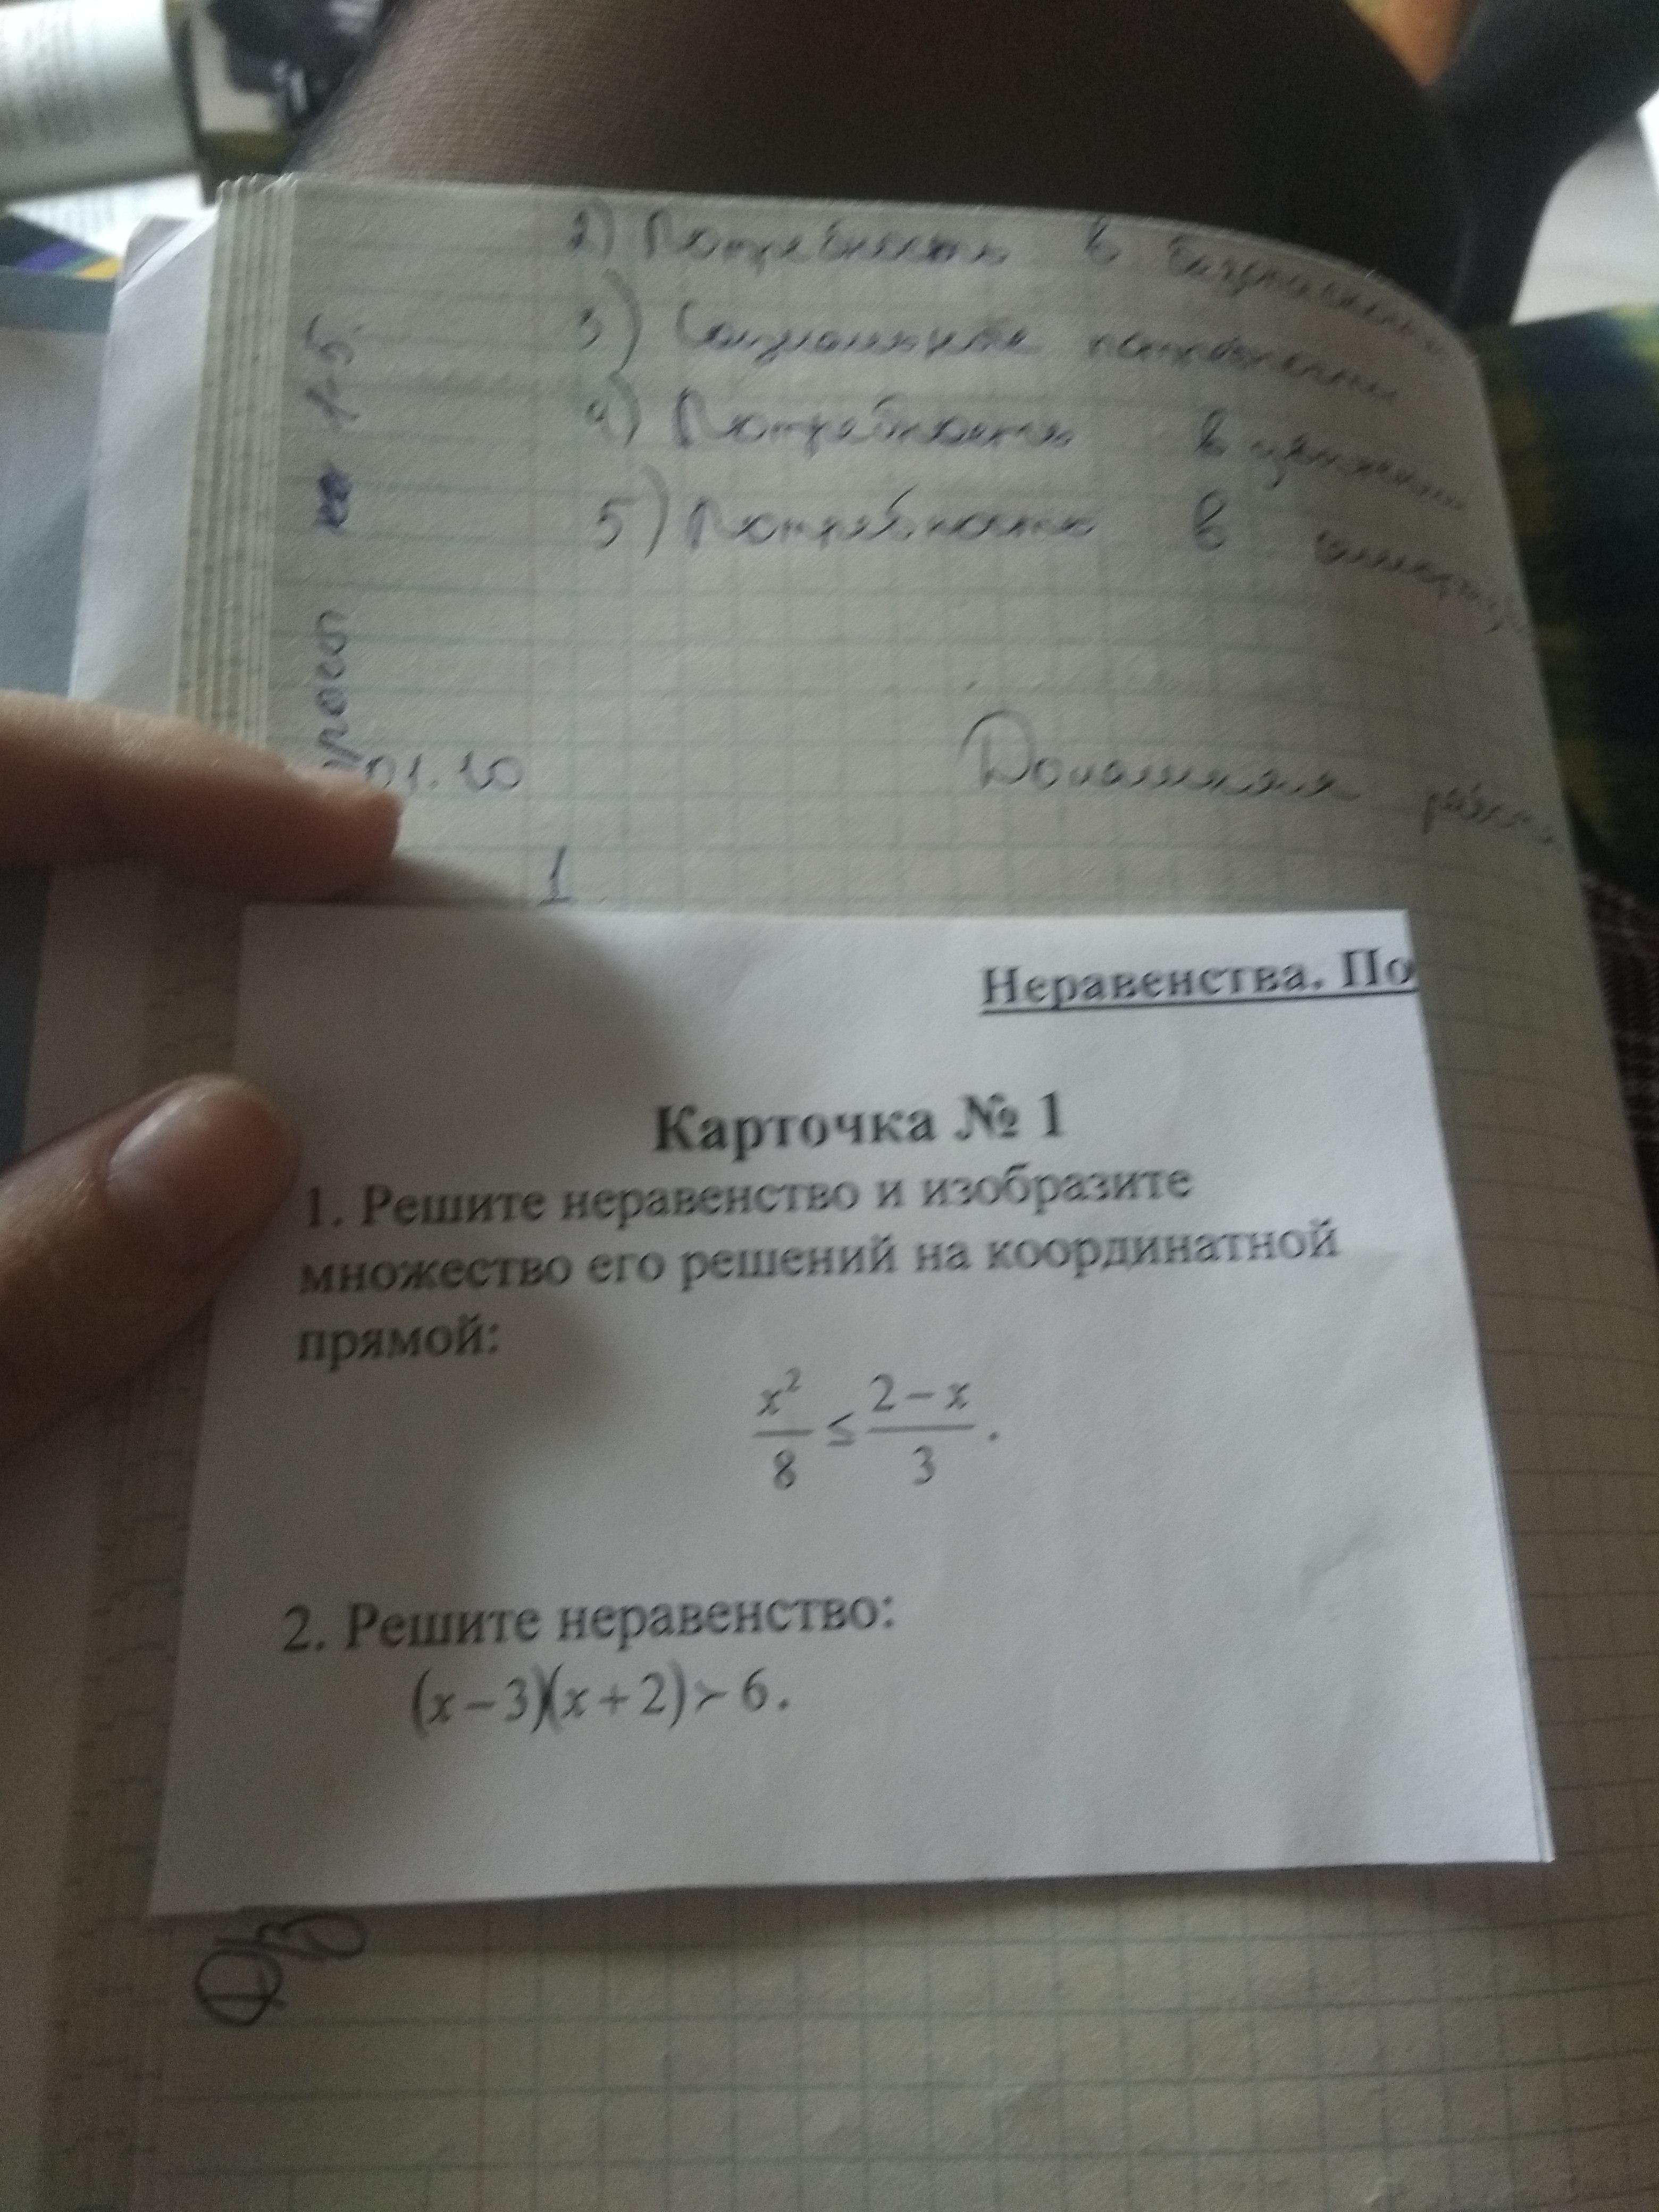 2) Потребность в безопасности
3) Социальные потребности
4) Потребность в уважении
5) Потребность в
1-5.
01.10
Домашняя
1
Неравенства. По
Карточка № 1
1. Решите неравенство и изобразите
множество его решений на координатной
прямой:
x²/8 ≤ (2 − x)/3.
2. Решите неравенство:
(x − 3)(x + 2) > 6.